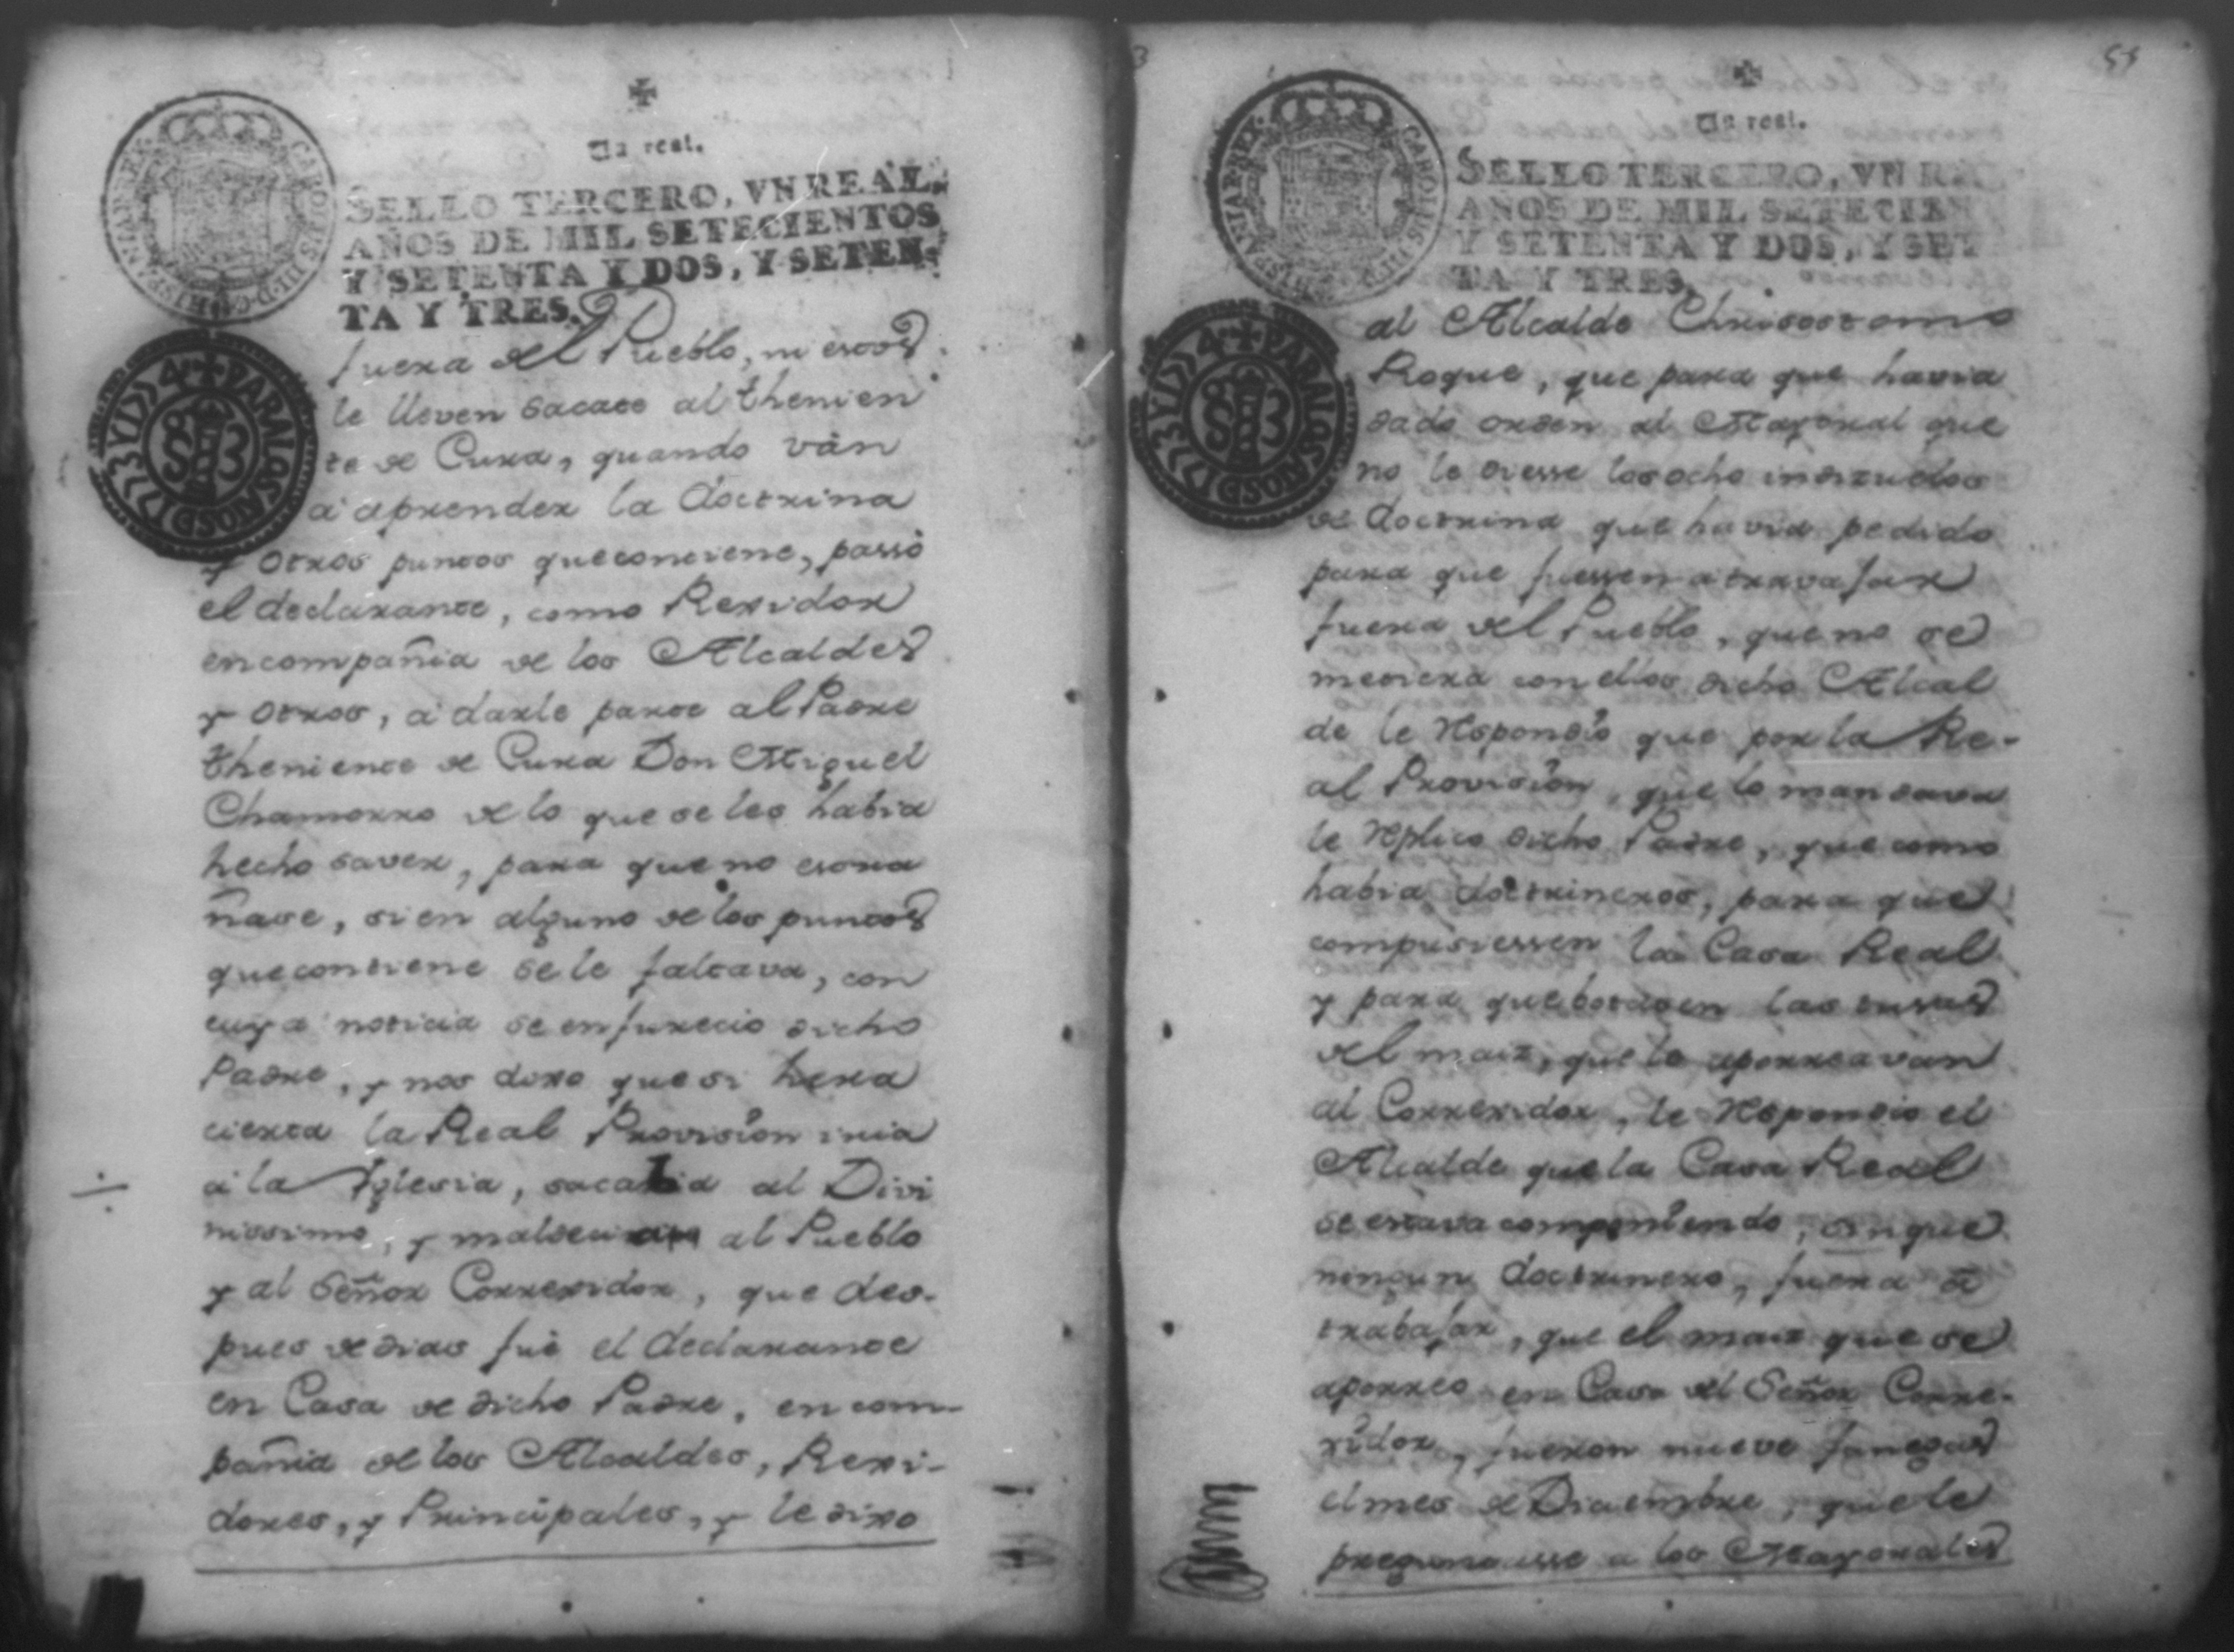 Un real.
SELLO TERCERO, VN REAL,
AÑOS DE MIL SETECIENTOS
Y SETENTA Y DOS, Y SETEN-
TA Y TRES.
CAROLUS III D G HISPANIAR REX
PARA LOS AÑOS DI 1773 Y 1774
fuera del Pueblo, ni estos
le lleven sacate al thenien
te de Cura, quando ván
á aprender la doctrina
y otros puntos que contiene, passó
el declarante, como Rexidor
en compañia de los Alcaldes
y otros, á darle parte al Padre
theniente de Cura Don Miguel
Chamorro de lo que se les habia
hecho saver, para que no estra
ñase, si en alguno de los puntos
que contiene se le faltava, con
cuya noticia se enfurecio dicho
Padre, y nos dixo que si hera
cierta la Real Provision iria
á la Yglesia, sacaria al Divi
nissimo, y maldeciria al Pueblo
y al Señor Correxidor, que des-
pues de dias fué el declarante
en Casa de dicho Padre, en com-
pañia de los Alcaldes, Rexi-
dores, y Principales, y le dixo
55
Un real.
SELLO TERCERO, VN R
AÑOS DE MIL SETECIEN
Y SETENTA Y DOS, Y SET
TA Y TRES.
CAROLUS III D G HISPANIAR REX
PARA LOS AÑOS DI 1773 Y 1774
al Alcalde Chrisostomo
Roque, que para que havia
dado orden al Mayoral que
no le diesse los ocho indizuelos
de doctrina que havia pedido
para que fuessen a travajar
fuera del Pueblo, que no se
metiera con ellos dicho Alcal
de le respondio que por la Re-
al Provision, que lo mandava
le replico dicho Padre, que como
habia doctrineros, para que
compusiessen la Casa Real
y para que botasen las tusas
del maiz, que le aporreavan
al Correxidor, le respondio el
Alcalde que la Casa Real
se estava componiendo, sin que
ningun doctrinero, fuera á
trabajar, que el maiz que se
aporreo en Casa del Señor Corre-
xidor, fueron nueve fanegas
el mes de Diciembre, que le
preguntasse a los Mayorales